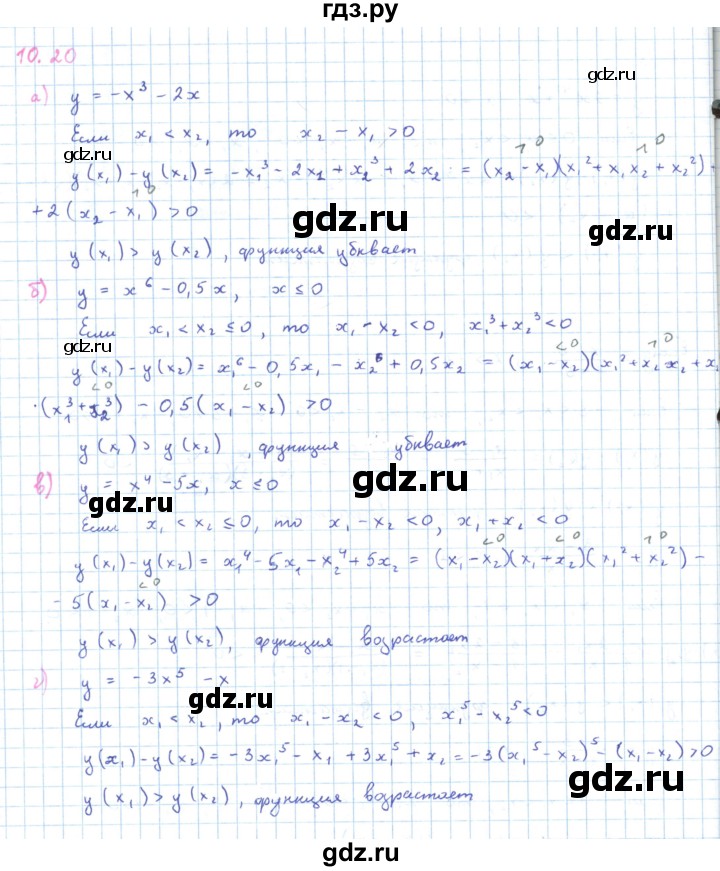 гдз.ру
10.20
gdz.ru
а) y = -x³ - 2x
Если x₁ < x₂, то x₂ - x₁ > 0
gdz.ru
y(x₁) - y(x₂) = -x₁³ - 2x₁ + x₂³ + 2x₂ = (x₂ - x₁)(x₁² + x₁x₂ + x₂²) +
+ 2(x₂ - x₁) > 0
gdz.ru
gdz.ru
y(x₁) > y(x₂), функция убывает
б) y = x⁶ - 0,5x, x ≤ 0
Если x₁ < x₂ ≤ 0, то x₁ - x₂ < 0, x₁³ + x₂³ < 0
gdz.ru
y(x₁) - y(x₂) = x₁⁶ - 0,5x₁ - x₂⁶ + 0,5x₂ = (x₁ - x₂)(x₁² + x₁x₂ + x
·(x₁³ + x₂³) - 0,5(x₁ - x₂) > 0
y(x₁) > y(x₂), функция убывает
gdz.ru
в) y = x⁴ - 5x, x ≤ 0
gdz.ru
Если x₁ < x₂ ≤ 0, то x₁ - x₂ < 0, x₁ + x₂ < 0
y(x₁) - y(x₂) = x₁⁴ - 5x₁ - x₂⁴ + 5x₂ = (x₁ - x₂)(x₁ + x₂)(x₁² + x₂²) -
- 5(x₁ - x₂) > 0
y(x₁) > y(x₂), функция возрастает
gdz.ru
г) y = -3x⁵ - x
Если x₁ < x₂, то x₁ - x₂ < 0, x₁⁵ - x₂⁵ < 0
y(x₁) - y(x₂) = -3x₁⁵ - x₁ + 3x₁⁵ + x₂ = -3(x₁⁵ - x₂)⁵ - (x₁ - x₂) > 0
gdz.ru
y(x₁) > y(x₂), функция возрастает
gdz.ru